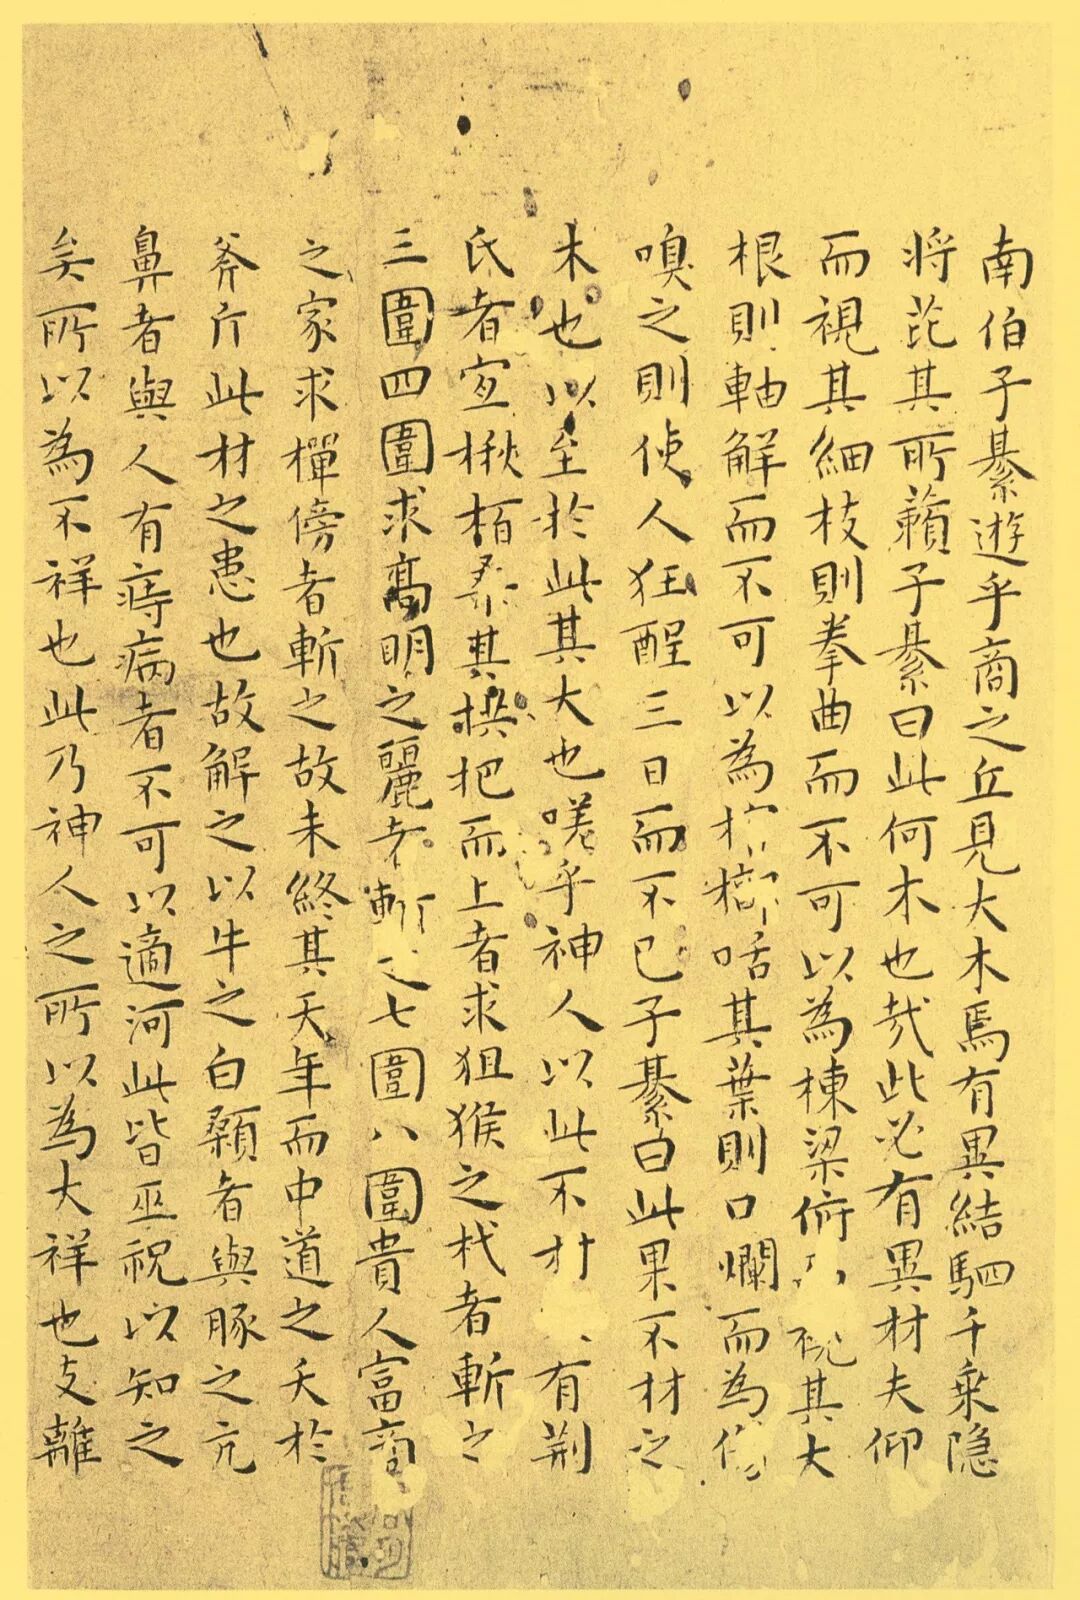 南伯子綦遊乎商之丘見大木焉有異結駟千乘隐
将芘其所藾子綦曰此何木也哉此必有異材夫仰
而視其細枝則拳曲而不可以為棟梁俯視其大
根則軸解而不可以為棺槨咶其葉則口爛而為傷
嗅之則使人狂酲三日而不已子綦曰此果不材之
木也以至於此其大也嗟乎神人以此不材有荆
氏者宜楸栢桑其拱把而上者求狙猴之杙者斬之
三圍四圍求髙明之麗者斬之七圍八圍貴人富商
之家求樿傍者斬之故未終其天年而中道之夭於
斧斤此材之患也故解之以牛之白顙者與豚之亢
鼻者與人有痔病者不可以適河此皆巫祝以知之
矣所以為不祥也此乃神人之所以為大祥也支離